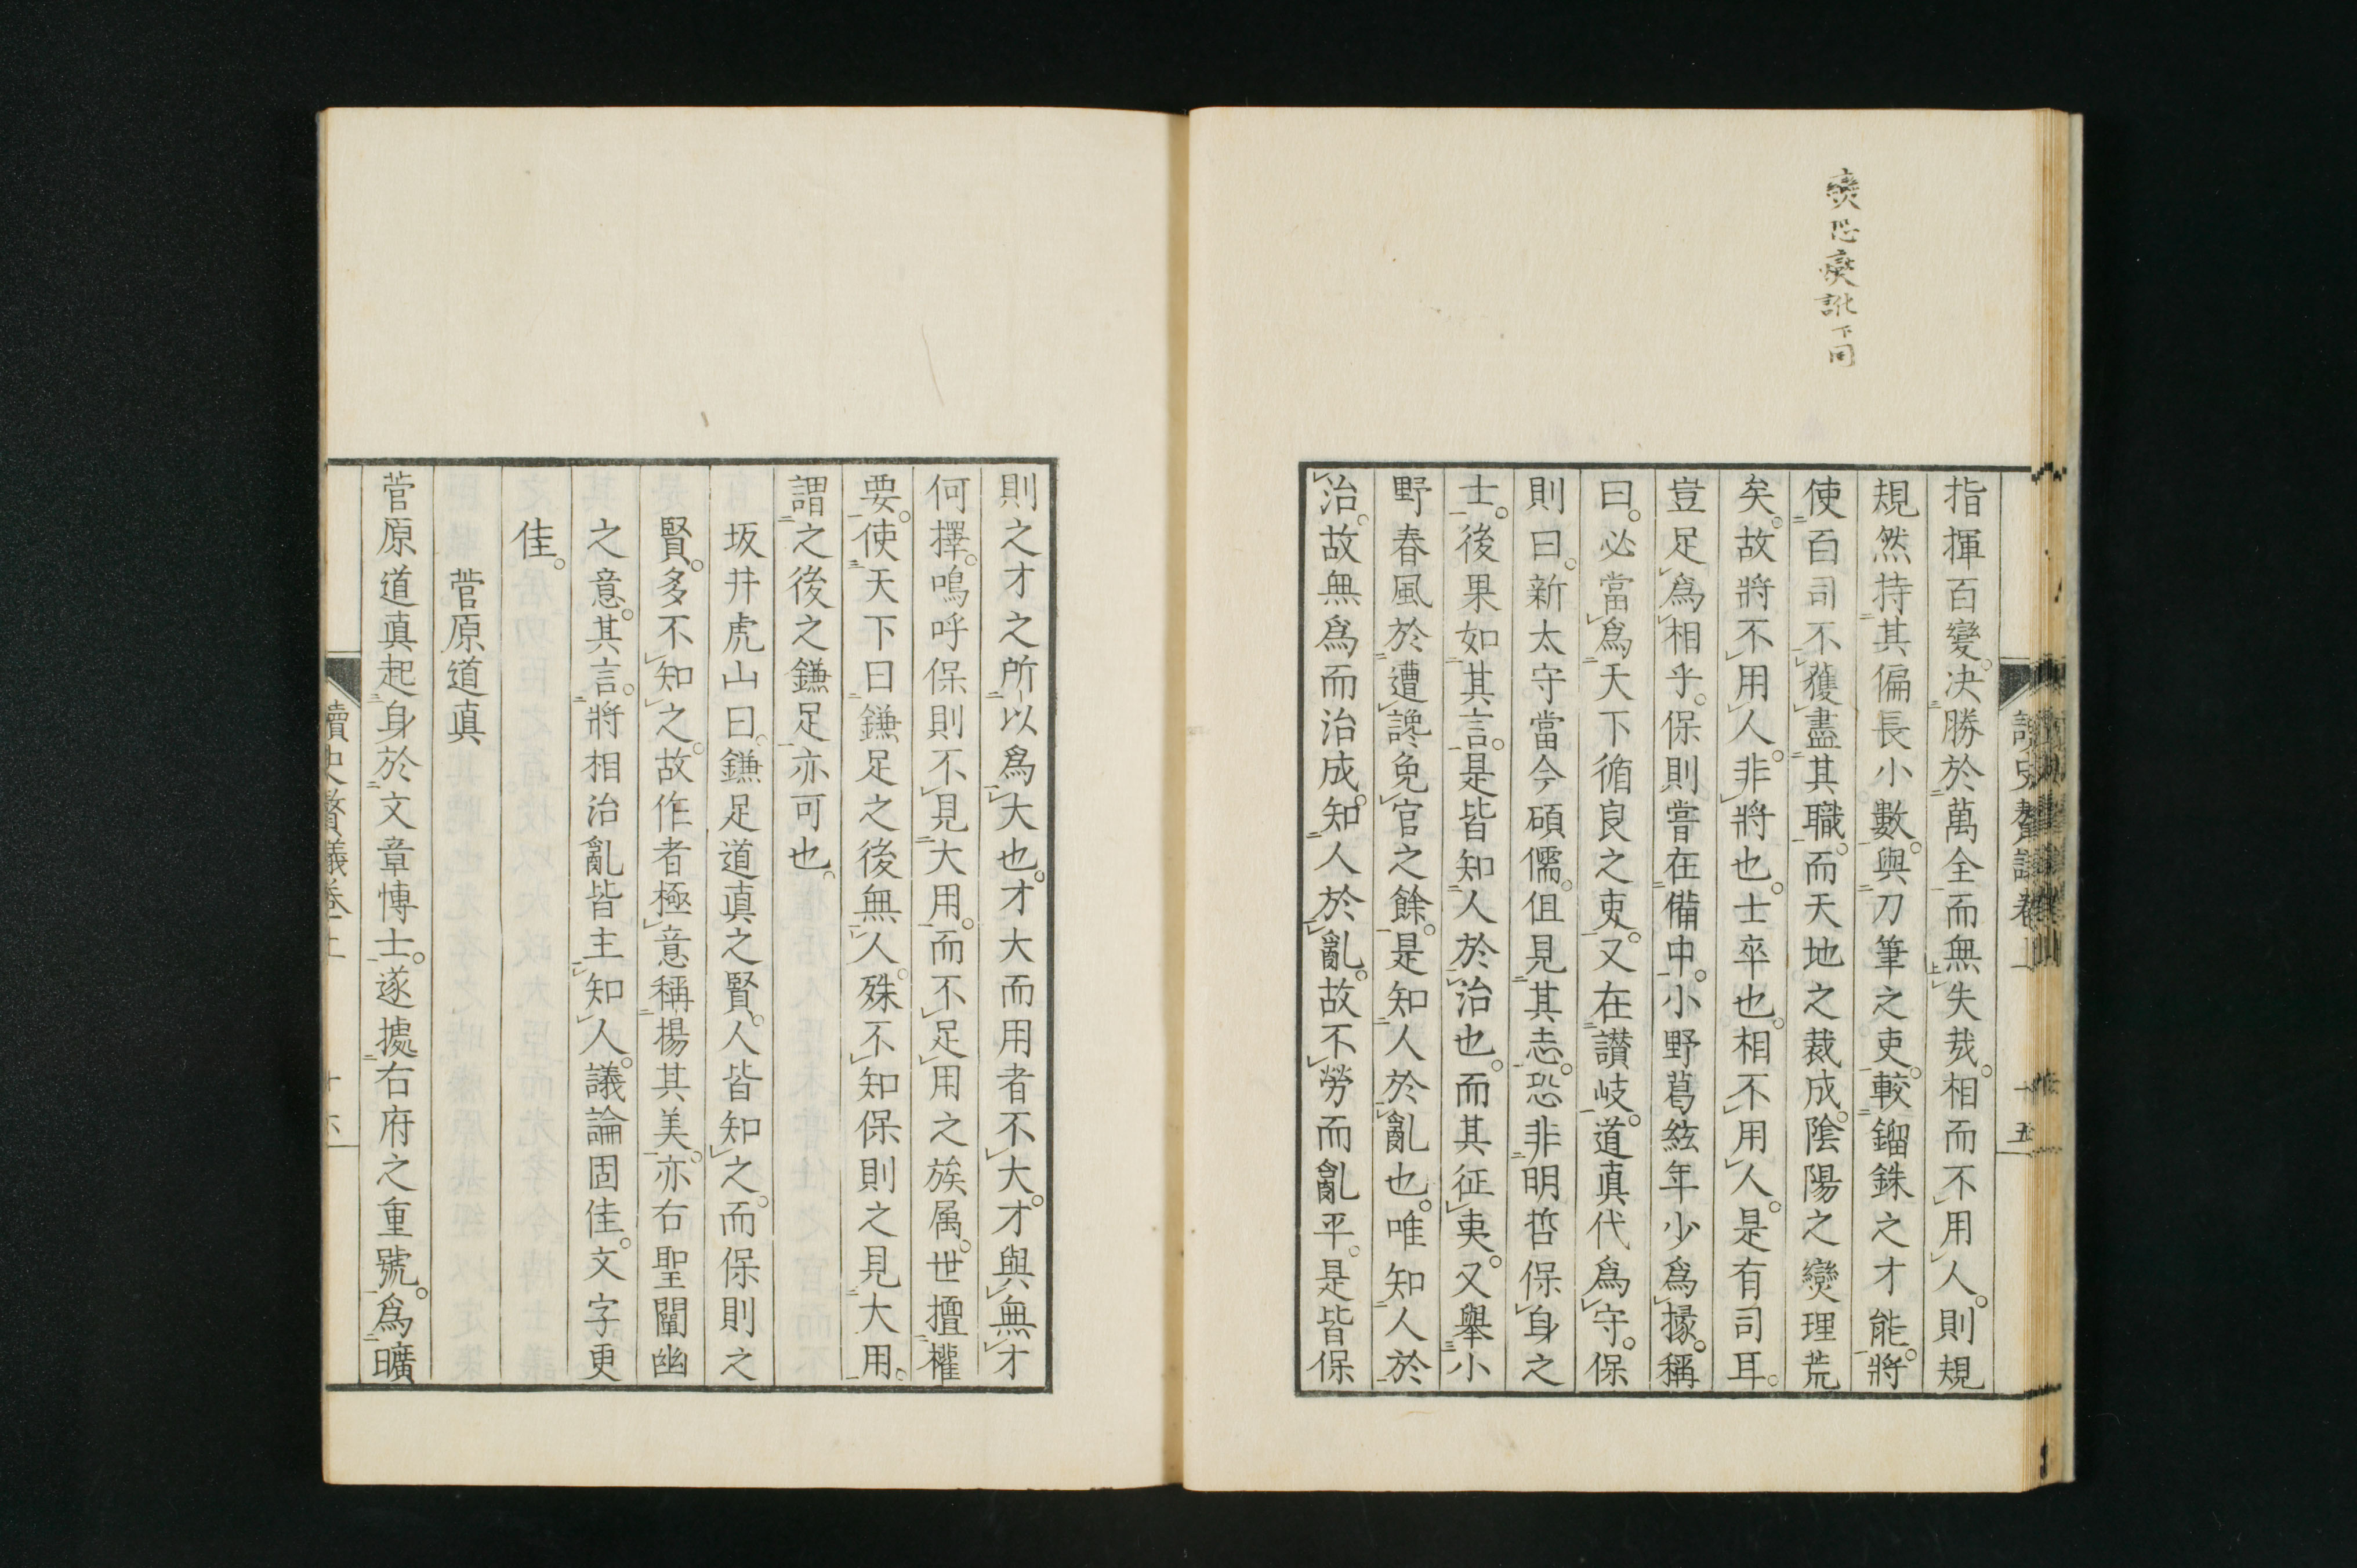 爕恐燮訛下同
讀史贅議卷上 十五
指揮百變。決勝於萬全而無失哉。相而不用人。則規
規然持其偏長小數。與刀筆之吏。較錙銖之才能。將
使百司不獲盡其職。而天地之裁成。陰陽之爕理荒
矣。故將不用人。非將也。士卒也。相不用人。是有司耳。
豈足爲相乎。保則嘗在備中。小野葛絃年少爲掾。稱
曰。必當爲天下循良之吏。又在讃岐。道眞代爲守。保
則曰。新太守當今碩儒。但見其志。恐非明哲保身之
士。後果如其言。是皆知人於治也。而其征夷。又舉小
野春風於遭讒免官之餘。是知人於亂也。唯知人於
治。故無爲而治成。知人於亂。故不勞而亂平。是皆保
則之才之所以爲大也。才大而用者不大。才與無才
何擇。嗚呼保則不見大用。而不足用之族属。世擅權
要。使天下曰鎌足之後無人。殊不知保則之見大用。
謂之後之鎌足亦可也。
坂井虎山曰。鎌足道眞之賢。人皆知之。而保則之
賢。多不知之。故作者極意稱揚其美。亦右聖闡幽
之意。其言。將相治亂皆主知人。議論固佳。文字更
佳。
菅原道眞
菅原道眞起身於文章博士。遂據右府之重號。爲曠
讀史贅議卷上 十六